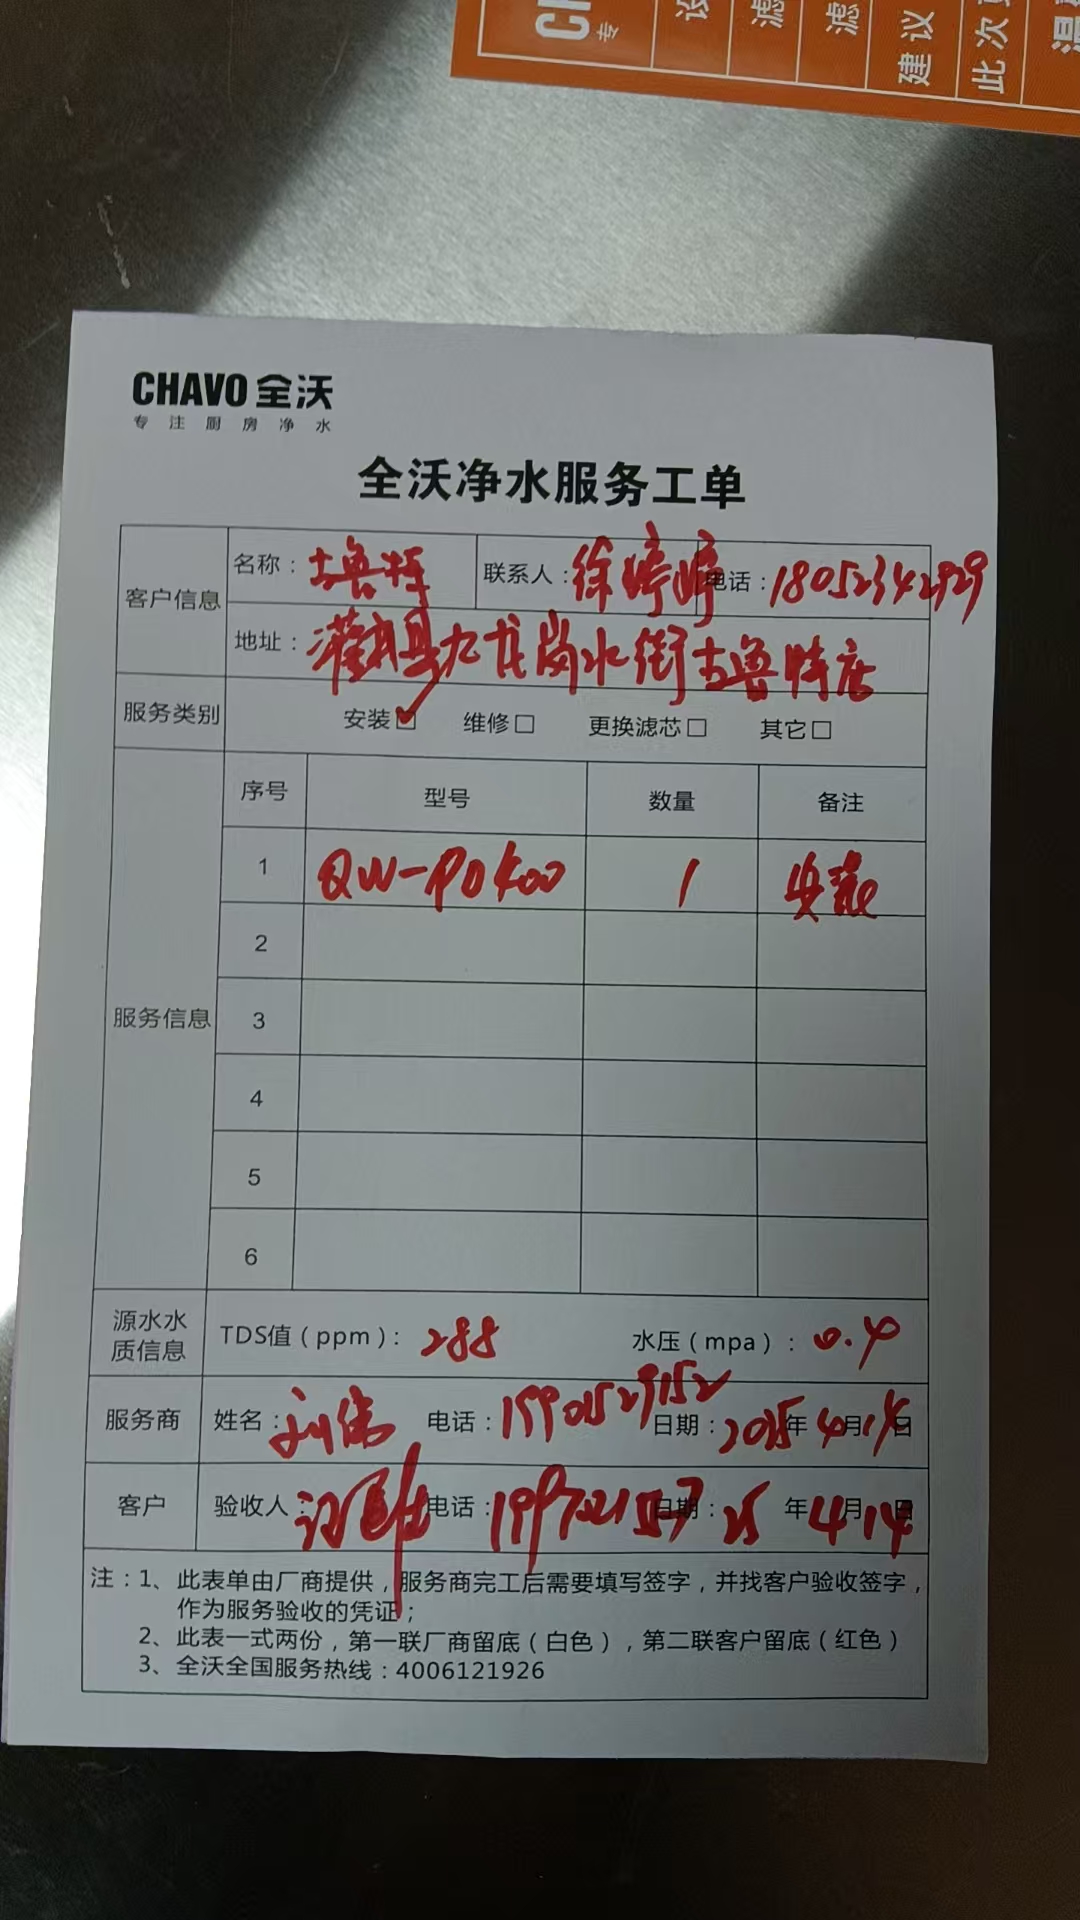 设
滤
滤
建议
此次
专
CHAVO 全沃
专注厨房净水
全沃净水服务工单
客户信息 名称： 联系人：徐婷婷 电话：18052342929
地址：灌南县九龙岗水街古鲁特店
服务类别 安装☑ 维修□ 更换滤芯□ 其它□
服务信息 序号 型号 数量 备注
1 QW-PD400 1 安装
2
3
4
5
6
源水水质信息 TDS值（ppm）：288 水压（mpa）：0.4
服务商 姓名：刘伟 电话：19901529152 日期：2025年4月14日
客户 验收人： 电话： 日期：25年4月14日
注：1、此表单由厂商提供，服务商完工后需要填写签字，并找客户验收签字，
作为服务验收的凭证；
2、此表一式两份，第一联厂商留底（白色），第二联客户留底（红色）
3、全沃全国服务热线：4006121926